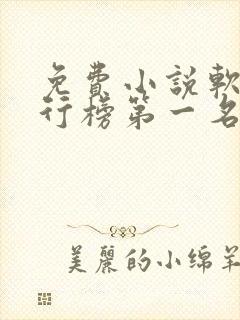 免費小說軟
行榜第一名
美麗的小绵羊